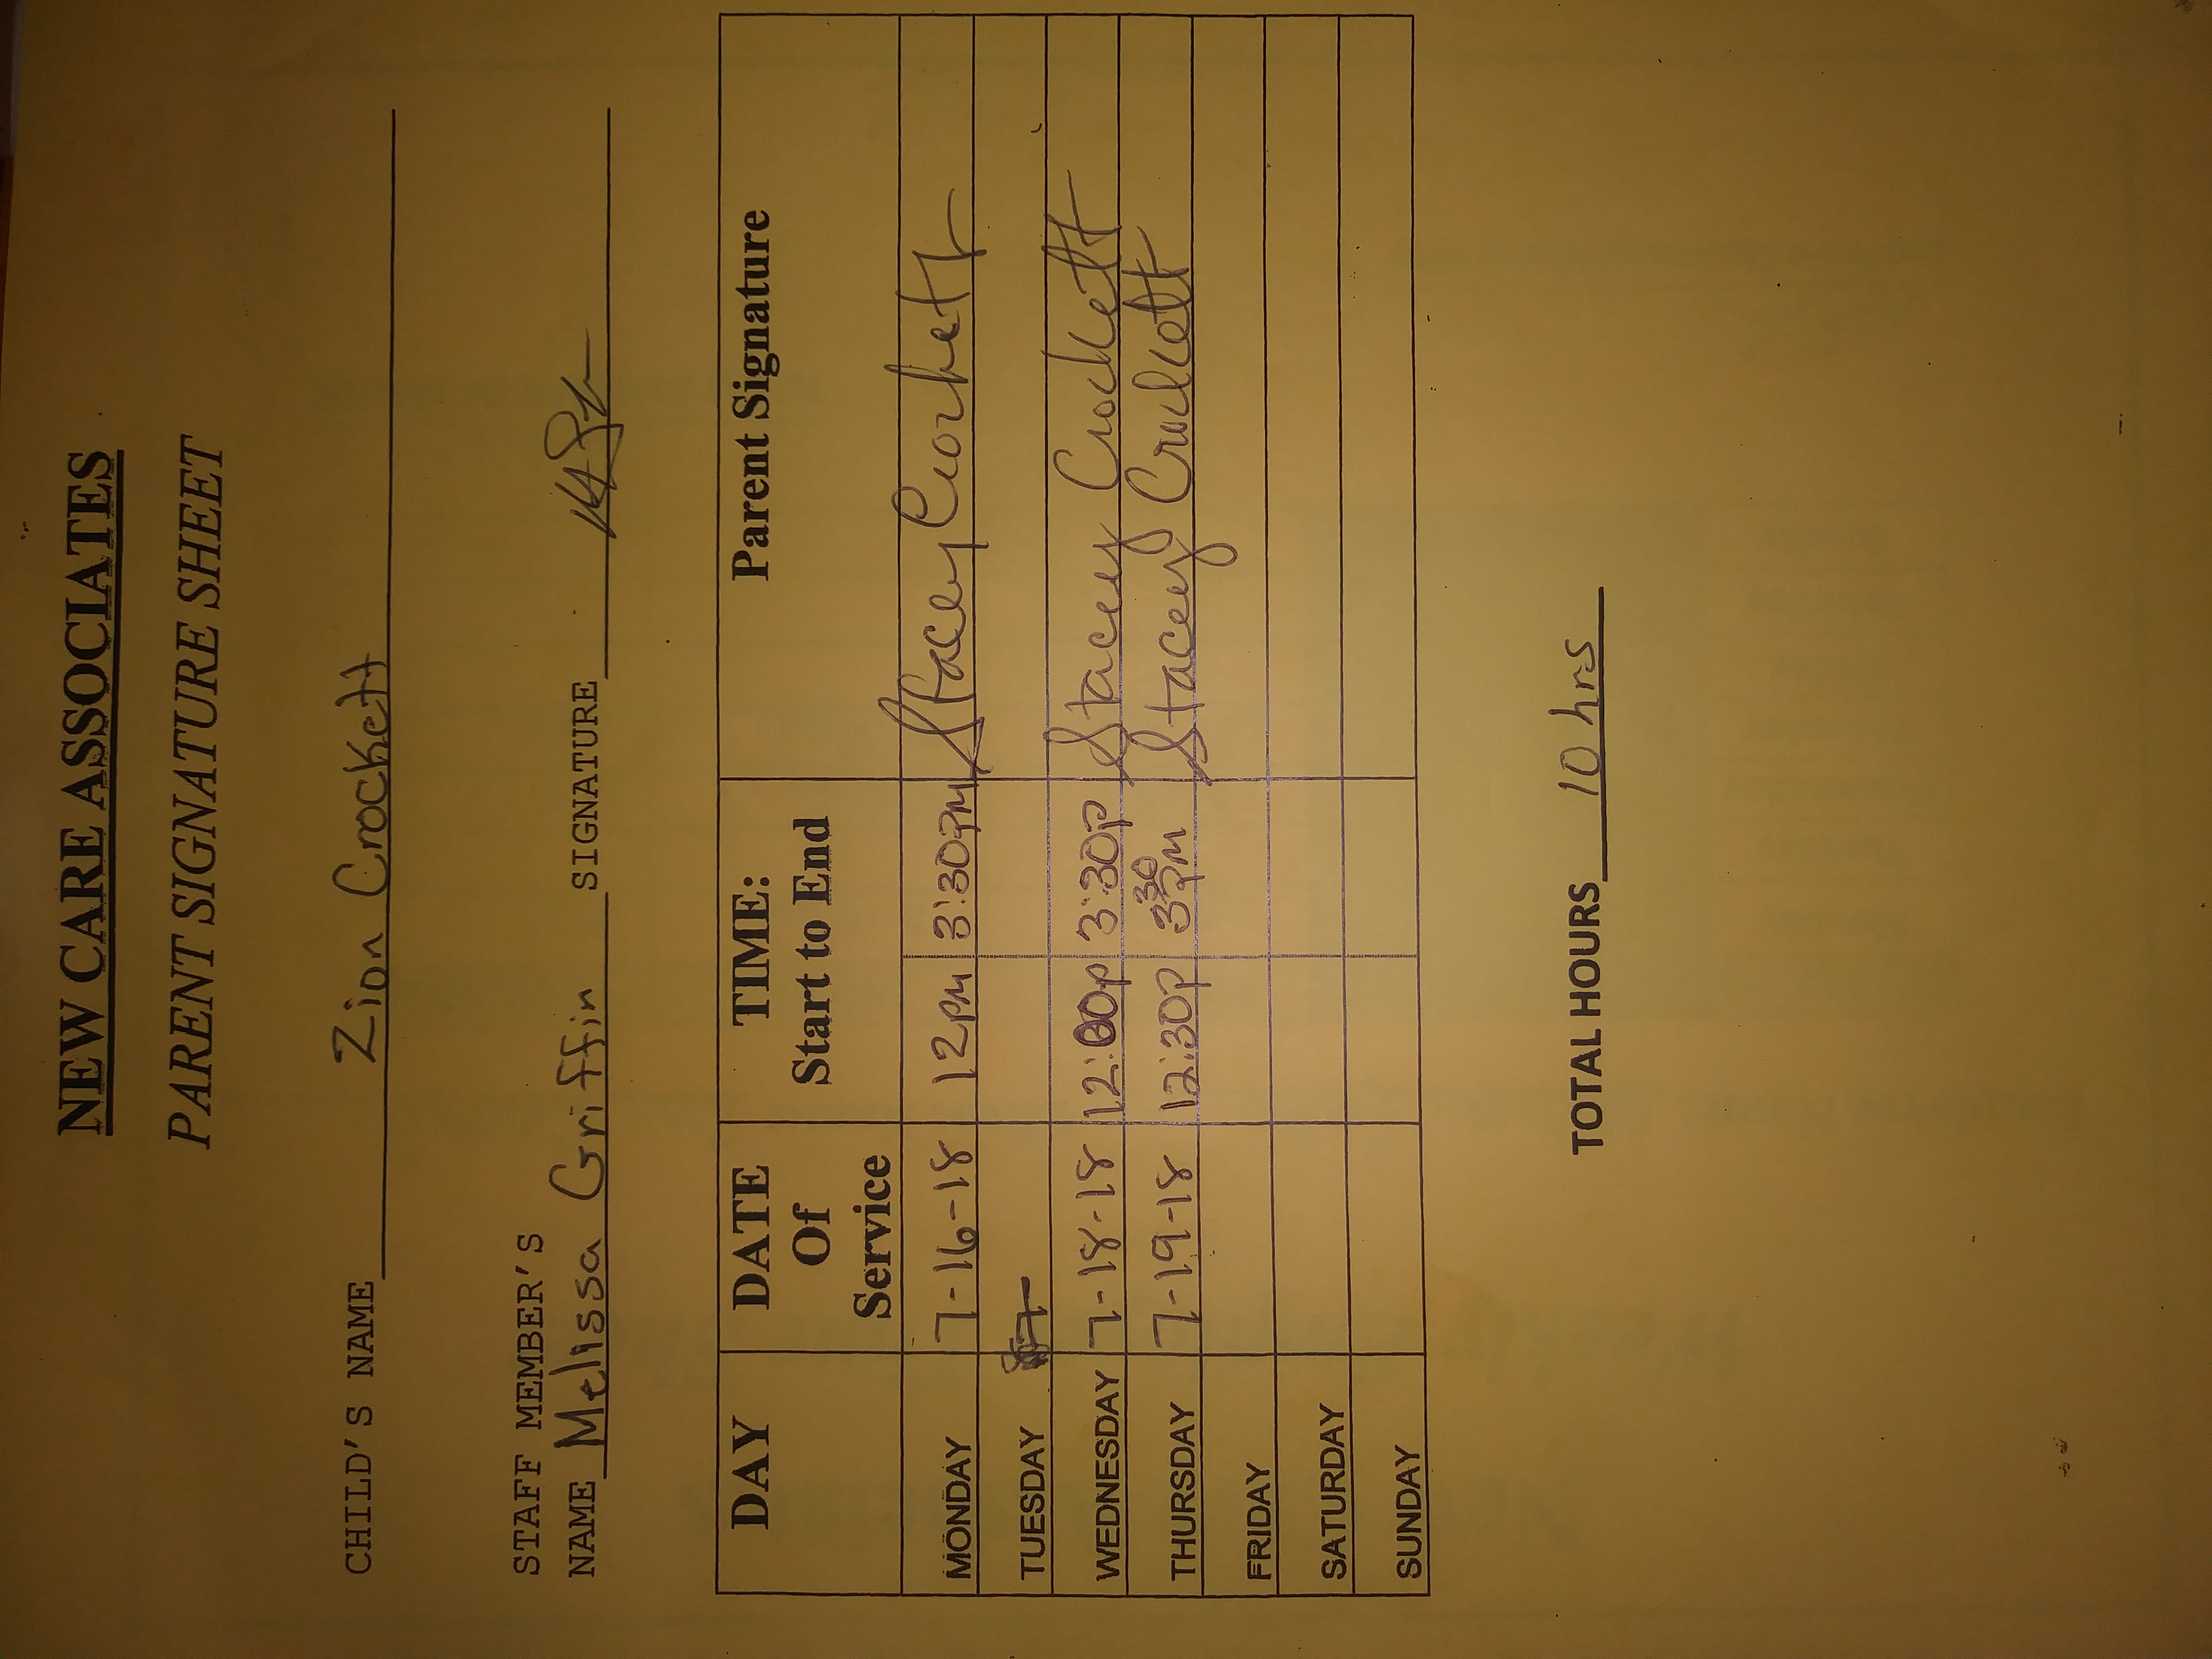 NEW CARE ASSOCIATES
PARENT SIGNATURE SHEET
CHILD'S NAME Zion Crockett
STAFF MEMBER'S
NAME Melissa Griffin SIGNATURE
DAY DATE Of Service TIME: Start to End Parent Signature
MONDAY 7-16-18 12PM 3:30PM Stacey Crockett
TUESDAY
WEDNESDAY 7-18-18 12:00p 3:30p Stacey Crockett
THURSDAY 7-19-18 12:30p 3 30 PM Stacey Crockett
FRIDAY
SATURDAY
SUNDAY
TOTAL HOURS 10 hrs